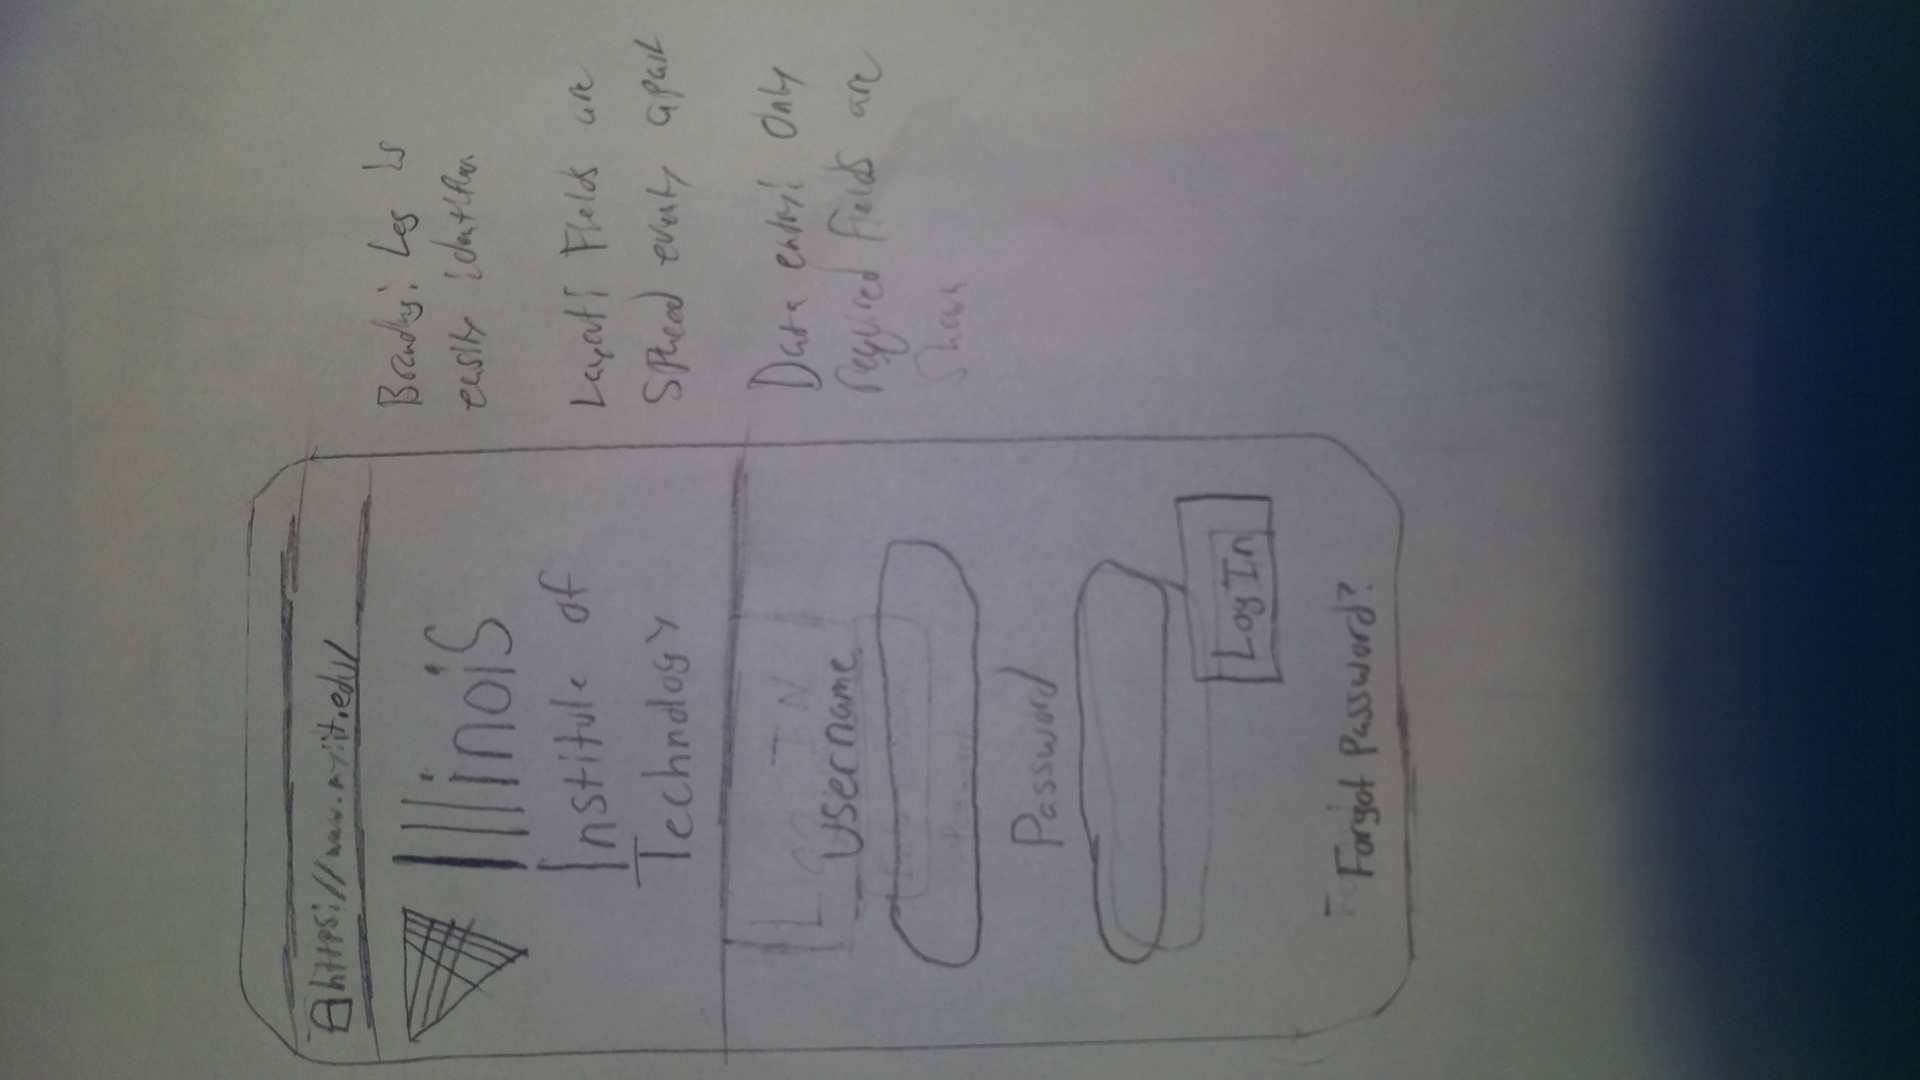 https://www.myiit.edu/
Illinois
Institute of
Technology
Username
Password
Log In
Forgot Password?
is
easily
Layout: Fields are
spread evenly apart
Data entry: Only
required fields are
shown